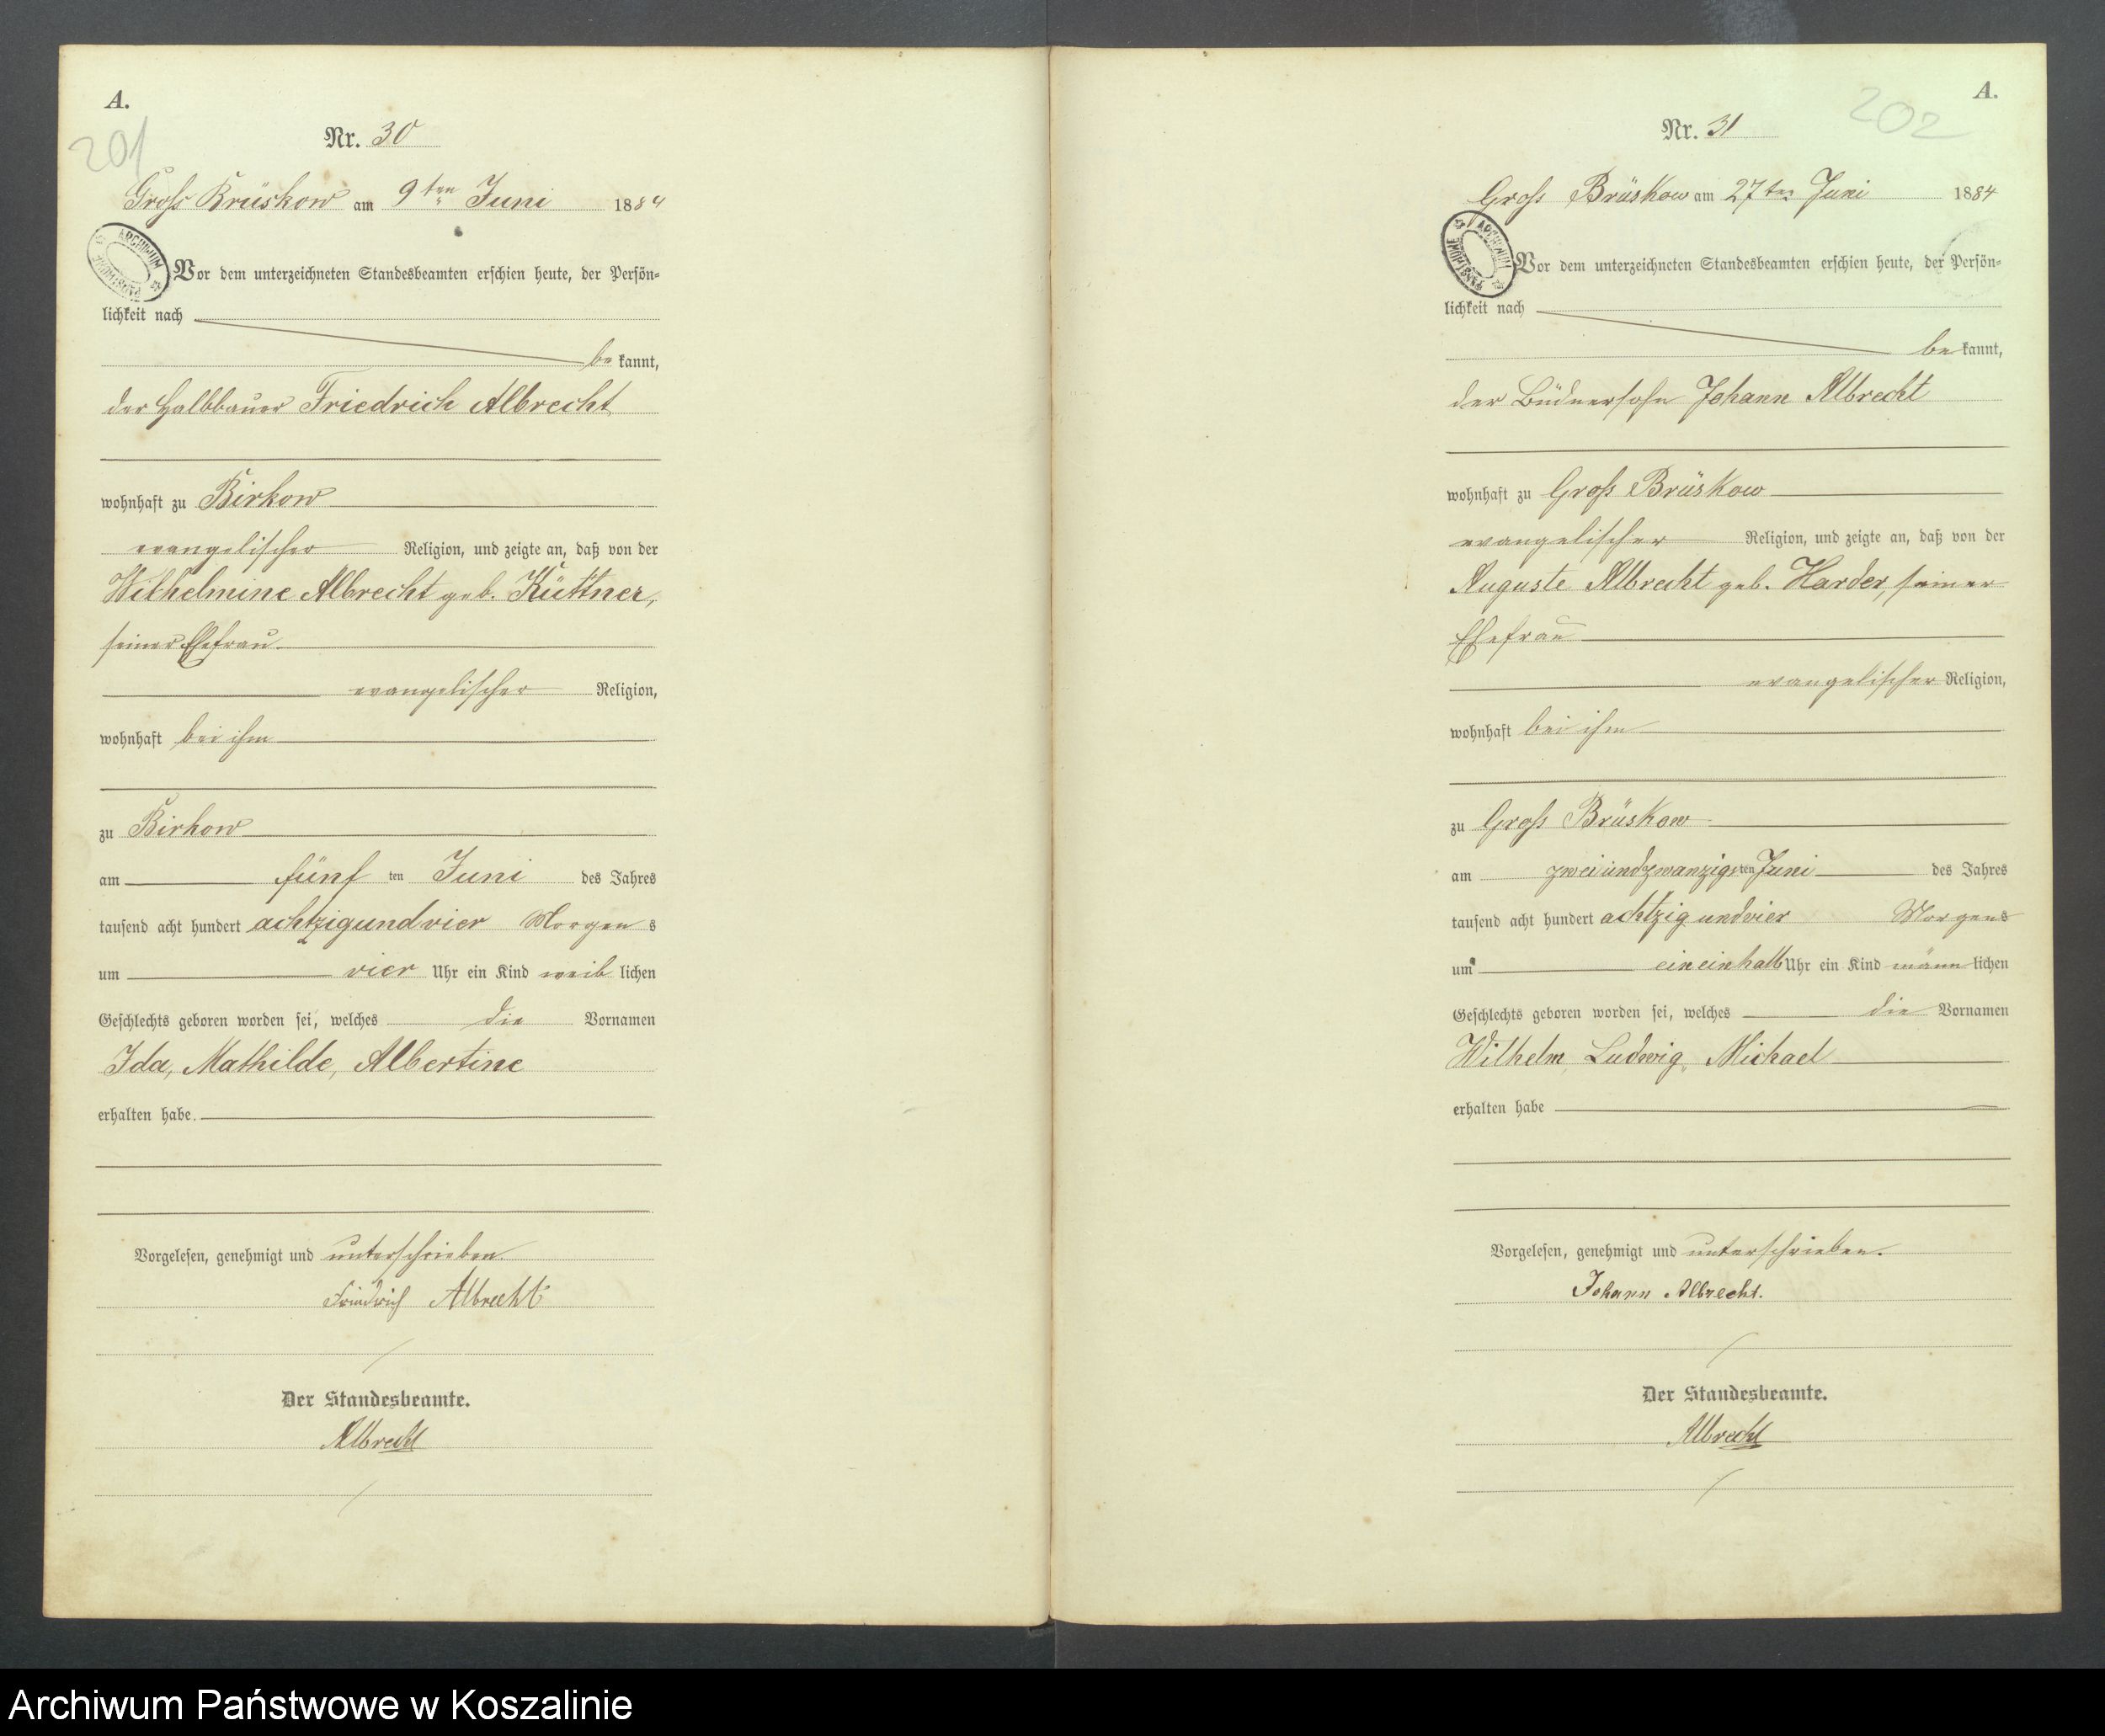 A.
201
Nr. 30
Gross Brüskow am 9ten Juni 1884
ARCHIWUM PAŃSTWOWE
Vor dem unterzeichneten Standesbeamten erschien heute, der Persön-
lichkeit nach
be kannt,
der Halbbauer Friedrich Albrecht
wohnhaft zu Birkow
evangelischer Religion, und zeigte an, daß von der
Wilhelmine Albrecht geb. Küttner,
seiner Ehefrau
evangelischer Religion,
wohnhaft bei ihm
zu Birkow
am fünf ten Juni des Jahres
tausend acht hundert achtzigundvier Morgen s
um vier Uhr ein Kind weib lichen
Geschlechts geboren worden sei, welches die Vornamen
Ida, Mathilde, Albertine
erhalten habe.
Vorgelesen, genehmigt und unterschrieben
Friedrich Albrecht
Der Standesbeamte.
Albrecht
A.
202
Nr. 31
Gross Brüskow am 27ten Juni 1884
ARCHIWUM PAŃSTWOWE
Vor dem unterzeichneten Standesbeamten erschien heute, der Persön-
lichkeit nach
be kannt,
der Büdnersohn Johann Albrecht
wohnhaft zu Gross Brüskow
evangelischer Religion, und zeigte an, daß von der
Auguste Albrecht geb. Harder, seiner
Ehefrau
evangelischer Religion,
wohnhaft bei ihm
zu Gross Brüskow
am zweiundzwanzigsten Juni des Jahres
tausend acht hundert achtzigundvier Morgens
um eineinhalb Uhr ein Kind männ lichen
Geschlechts geboren worden sei, welches die Vornamen
Wilhelm, Ludwig, Michael
erhalten habe
Vorgelesen, genehmigt und unterschrieben.
Johann Albrecht.
Der Standesbeamte.
Albrecht
Archiwum Państwowe w Koszalinie